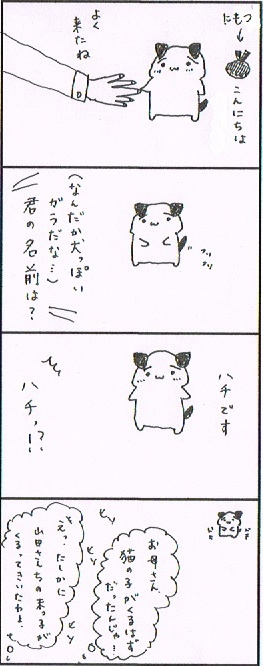 にもつ
こんにちは
よく
来たね
フリ
フリ
(なんだか犬っぽい
がらだな…)
君の名前は?
ハチです
ハチっ!?
お母さん、
猫の子がくるはず
だったんじゃ…
ヒソ
ヒソ
えっ、たしかに
山田さんちの末っ子が
くるってきいたわよ。